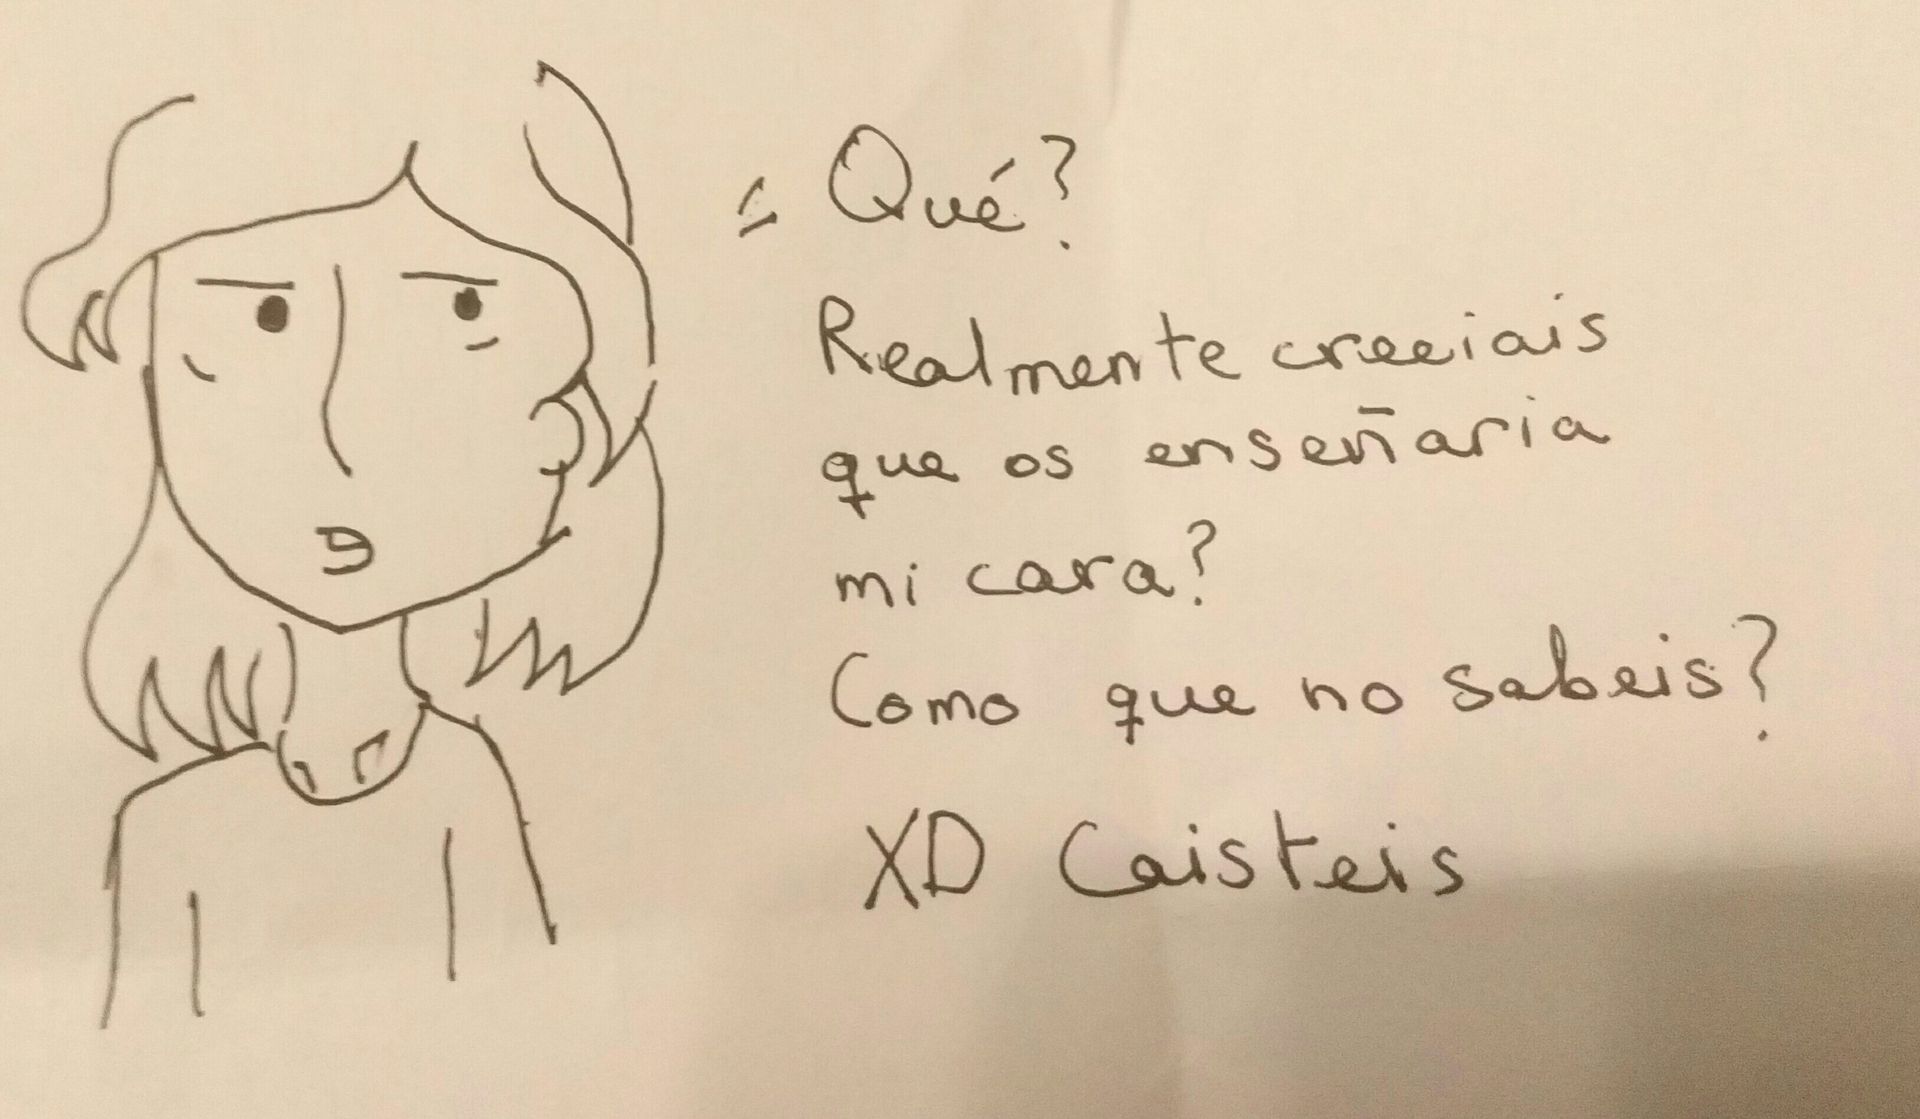 = Qué?
Realmente creeiais
que os enseñaria
mi cara?
Como que no sabeis?
XD Caisteis